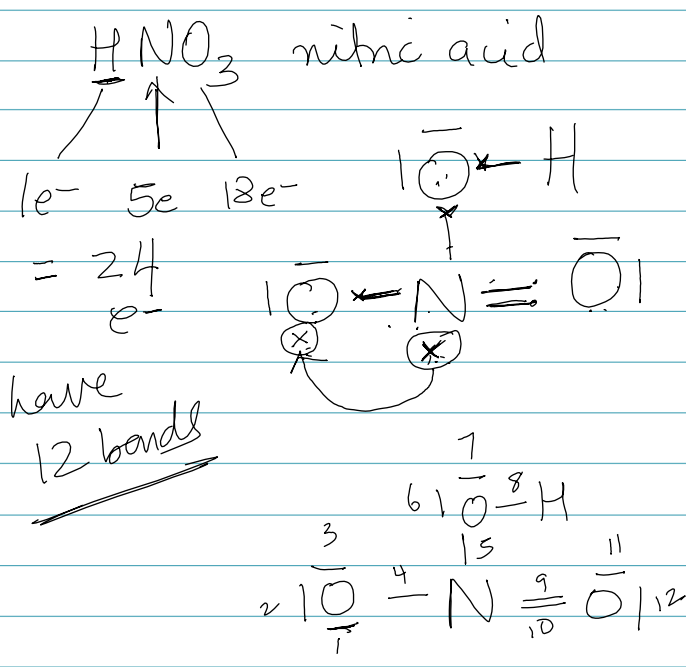 HNO3 nitric acid
1e- 5e 18e-
= 24
e-
have
12 bonds
|O ← H
|O ← N = O|
x x
7
6 |O 8 H
3 |5 11
2 |O 4 N 9 O| 12
1 10